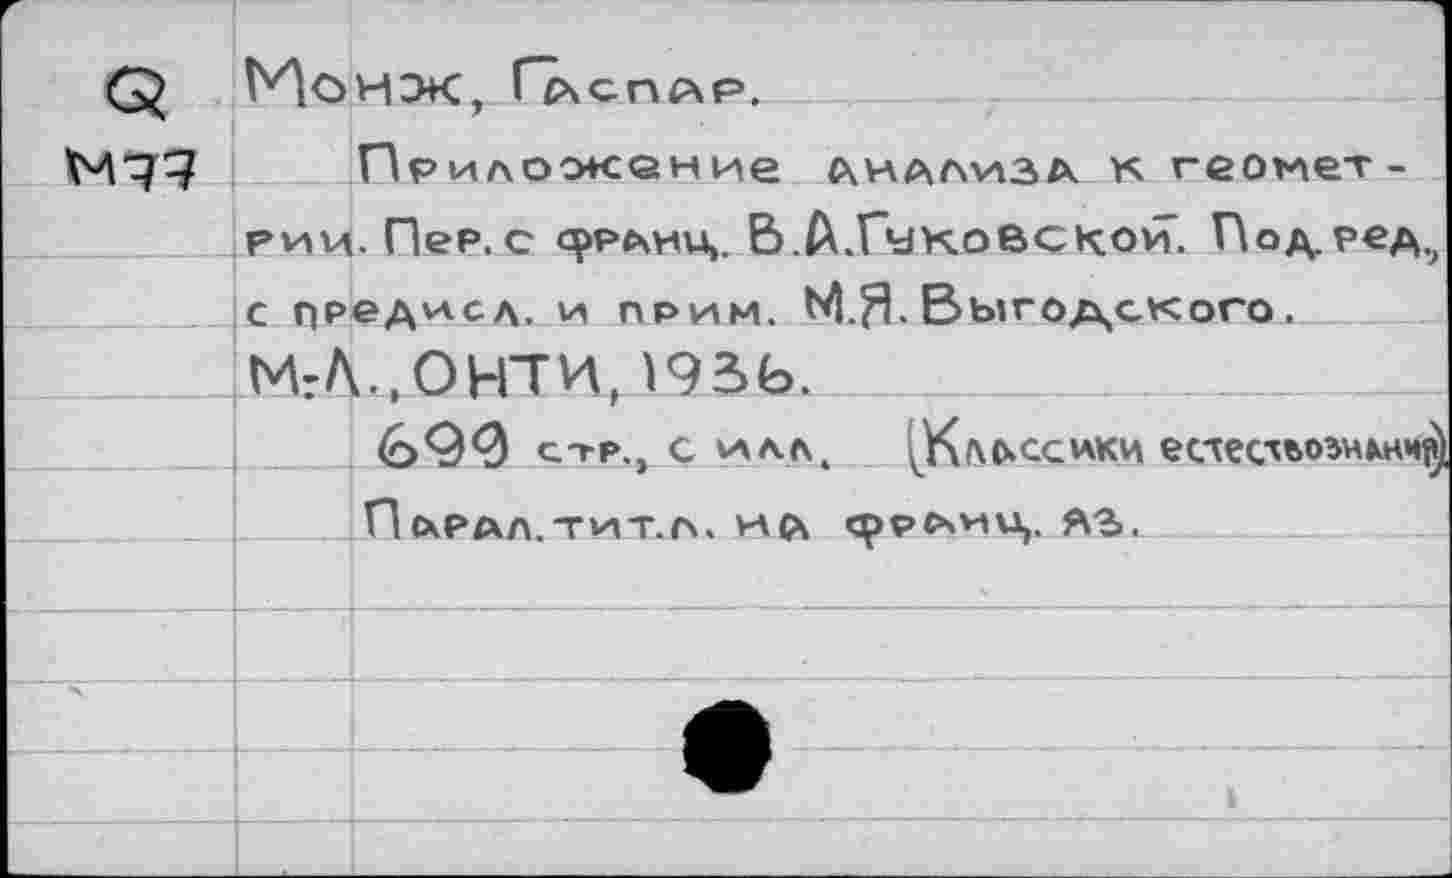 Q Монж, Гаспар.
М77 Приложение анализа к геомет-
рии. Пер. с франц. В.А.Гуковской. Под. ред.,
с предисл. и прим. М.Я. Выгодского.
М.-Л., ОНТИ, 1936.
699 стр., с илл. (Классики естествознания)
Парал. тит. л. на франц. яз.